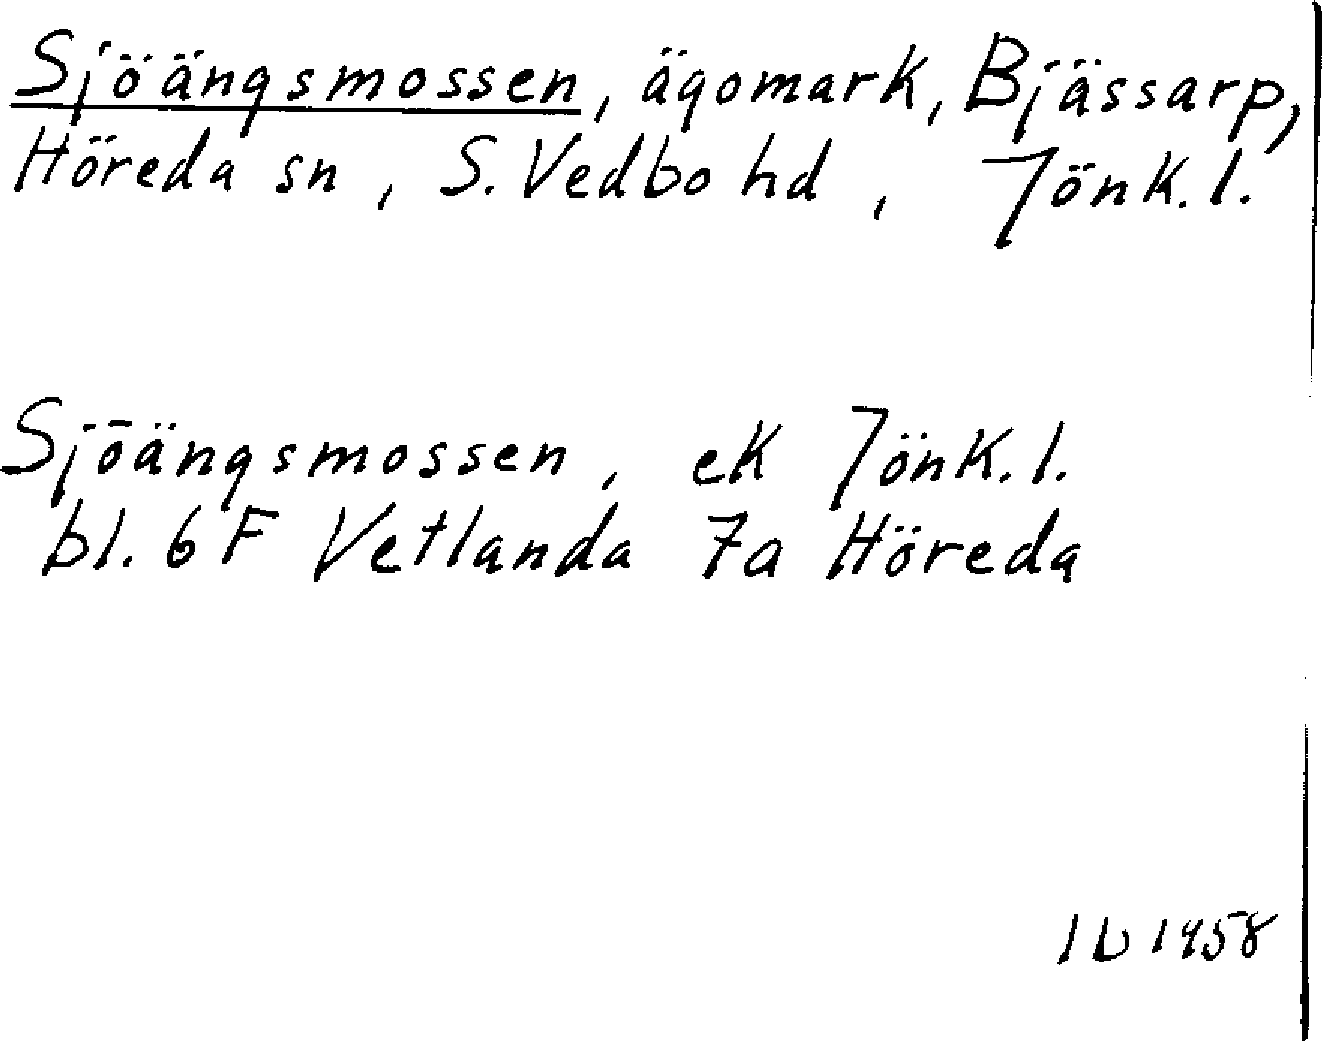 Sjöängsmossen, ägomark, Bjässarp,
Höreda sn, S. Vedbo hd, Jönk. l.
Sjöängsmossen, ek Jönk. l.
bl. 6 F Vetlanda 7a Höreda
1958